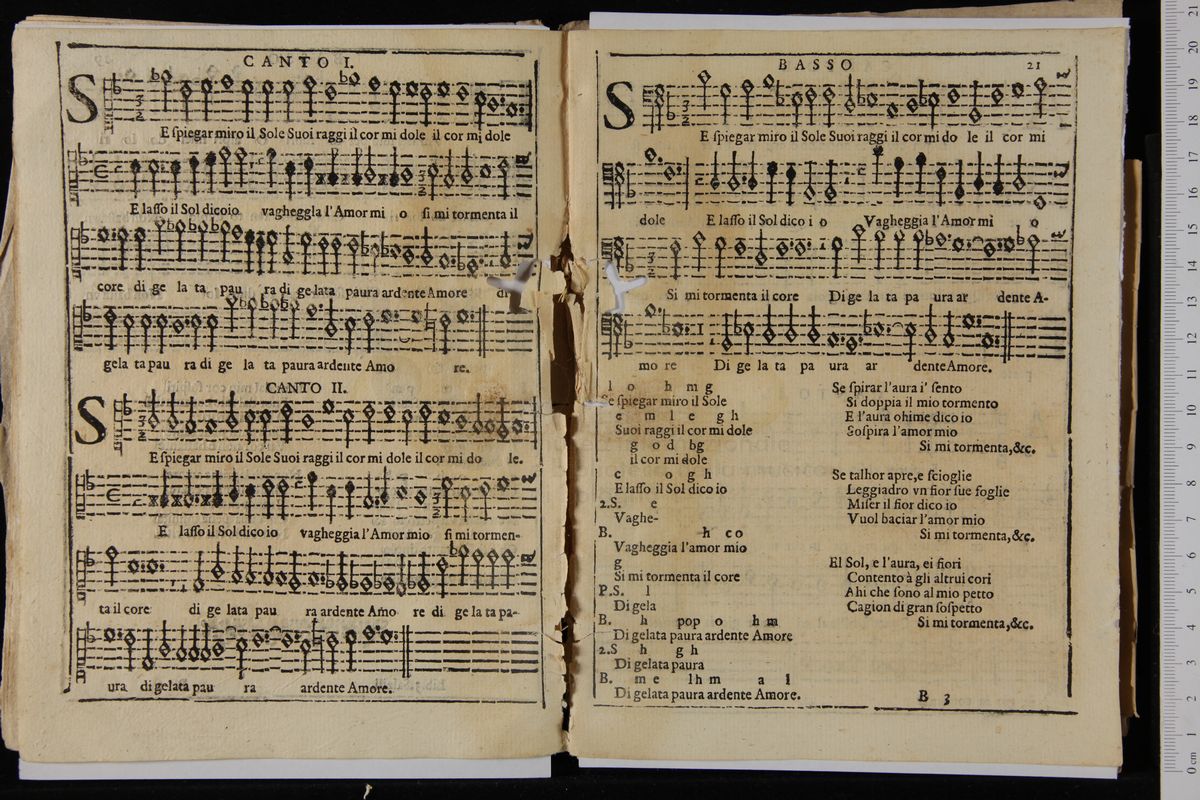 CANTO I.
SE ſpiegar miro il Sole Suoi raggi il cor mi dole il cor mi dole
E laſſo il Sol dicoio vagheggla l'Amor mi o ſi mi tormenta il
core di ge la ta pau ra di ge lata paura ardente Amore di
gela ta pau ra di ge la ta paura ardente Amo re.
CANTO II.
SE ſpiegar miro il Sole Suoi raggi il cor mi dole il cor mi do le.
E laſſo il Sol dico io vagheggia l'Amor mio ſi mi tormen-
ta il core di ge lata pau ra ardente Amo re di ge la ta pa-
ura di gelata pau ra ardente Amore.
BASSO 21
SE ſpiegar miro il Sole Suoi raggi il cor mi do le il cor mi
dole E laſſo il Sol dico i o Vagheggia l'Amor mi o
Si mi tormenta il core Di ge la ta pa ura ar dente A-
mo re Di ge la ta pa ura ar dente Amore.
l o h m g
Se ſpiegar miro il Sole
e m l e g h
Suoi raggi il cor mi dole
g o d bg
il cor mi dole
c o g h
E laſſo il Sol dico io
2.S. e
Vaghe-
B. h c o
Vagheggia l'amor mio
g
Si mi tormenta il core
P.S. l
Di gela
B. h pop o h m
Di gelata paura ardente Amore
2.S h g h
Di gelata paura
B. m e lh m a l
Di gelata paura ardente Amore.
Se ſpirar l'aura i' ſento
Si doppia il mio tormento
E l'aura ohime dico io
Soſpira l'amor mio
Si mi tormenta,&c.
Se talhor apre,e ſcioglie
Leggiadro vn fior ſue foglie
Miſer il fior dico io
Vuol baciar l'amor mio
Si mi tormenta,&c.
El Sol, e l'aura, ei fiori
Contento à gli altrui cori
Ahi che ſono al mio petto
Cagion di gran ſoſpetto
Si mi tormenta,&c.
B 3